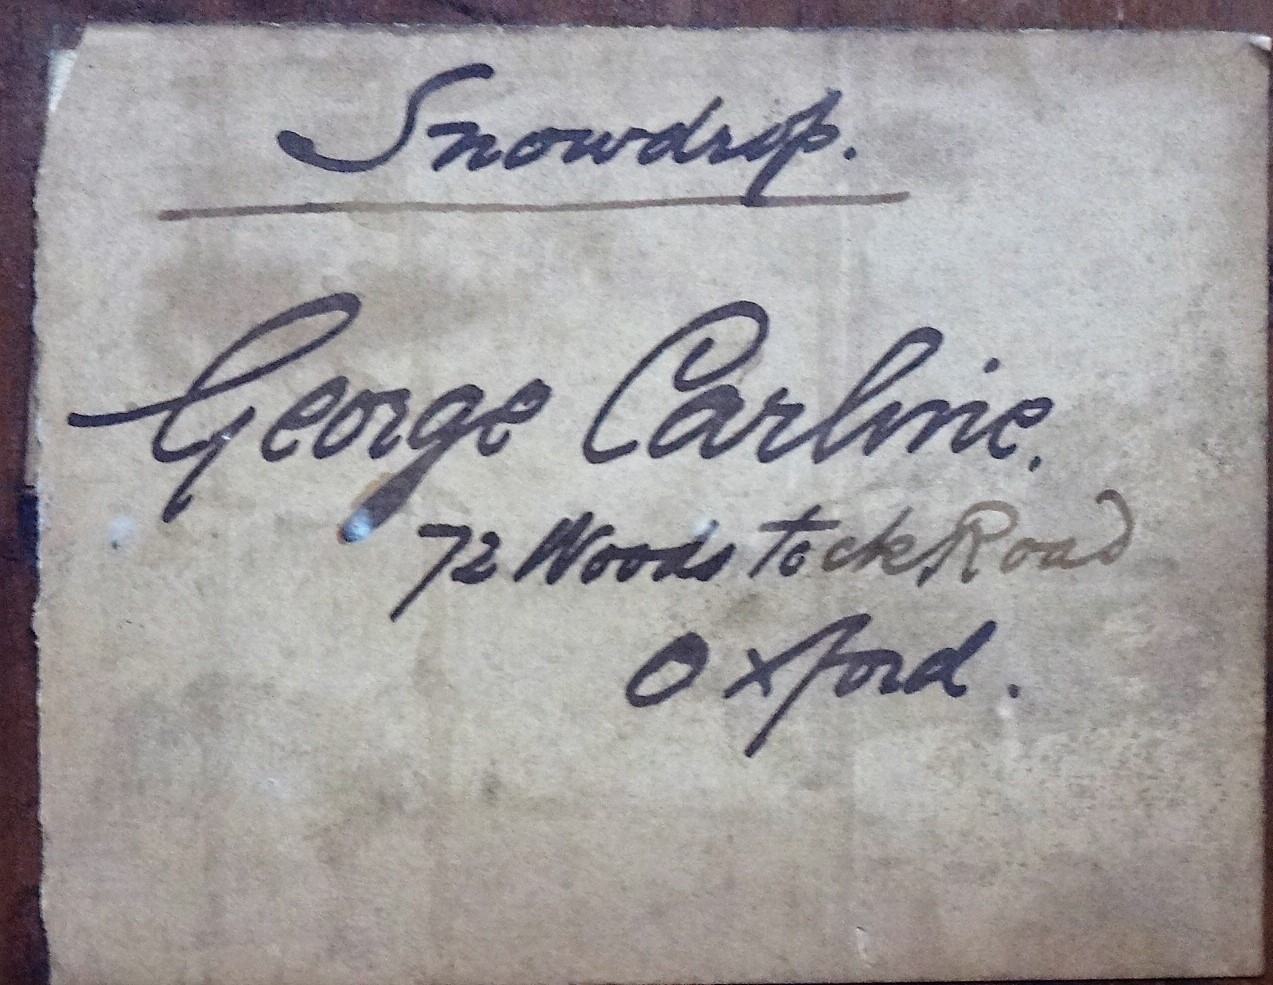 Snowdrop.
George Carline.
72 Woodstock Road
Oxford.